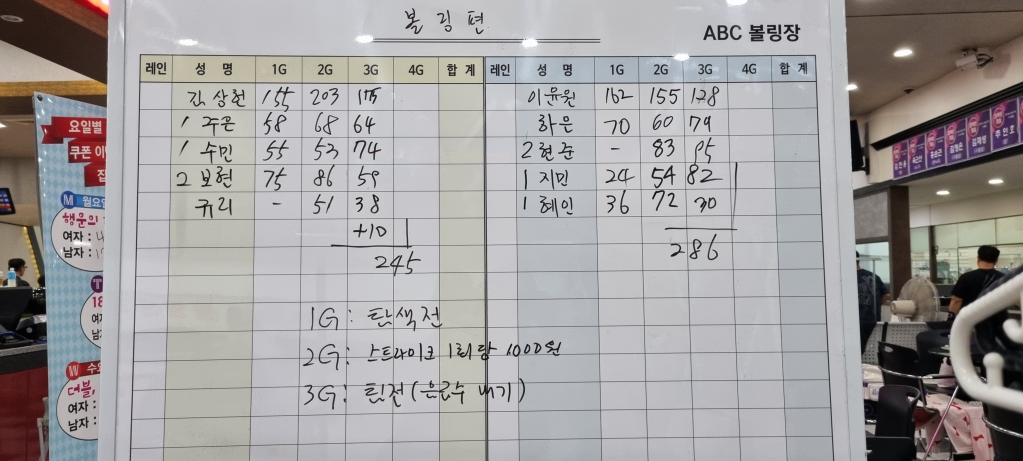 볼링편
ABC 볼링장
레인 성 명 1G 2G 3G 4G 합 계 레인 성 명 1G 2G 3G 4G 합 계
김상헌 155 203 175 이윤원 162 155 128
1 주은 58 68 64 하은 70 60 79
1 수민 55 53 74 2 현준 - 83 95
2 보현 75 86 59 1 지민 24 54 82
규리 - 51 38 1 혜인 36 72 30
+10
245 286
1G : 탄색전
2G : 스트라이크 1회당 1000원
3G : 팀전 (음료수 내기)
요일별
쿠폰 이
M 월요일
행운의
여자 :
남자 :
T
18
W 수요
더블,
여자 :
남자 :